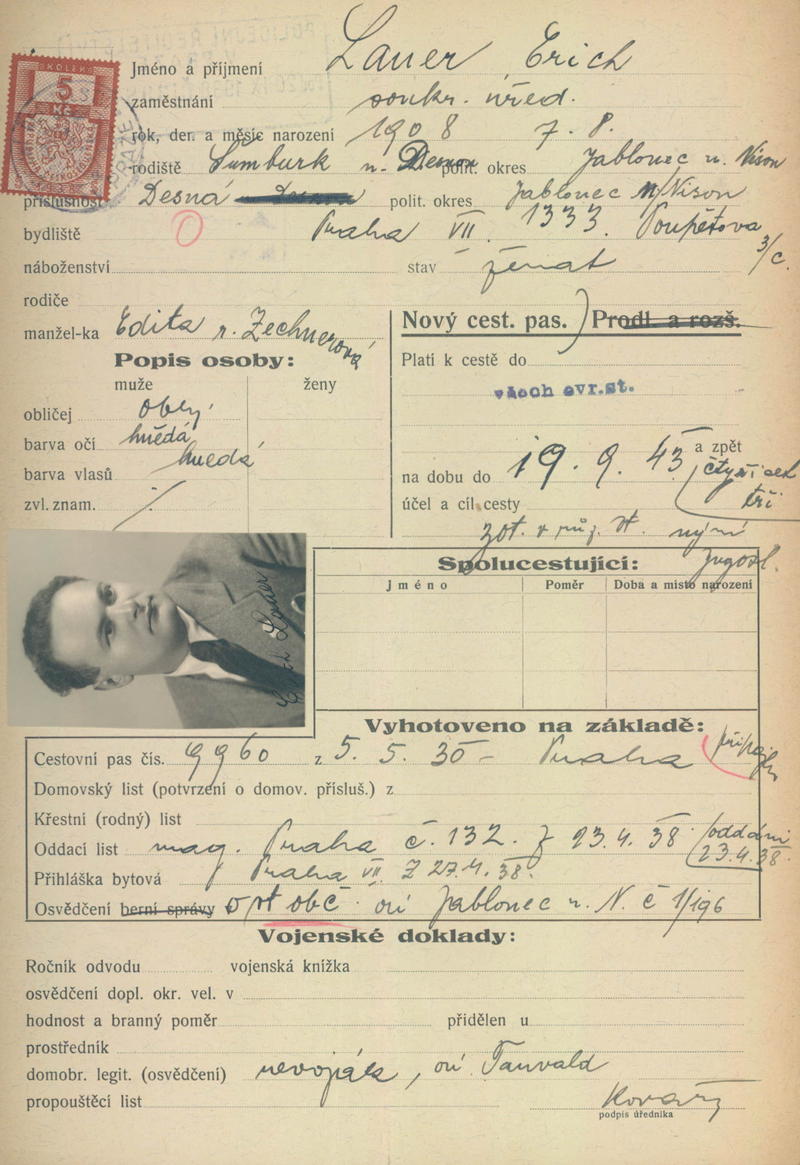 POLICEJNÍ ŘEDITELSTVÍ
KOLEK
5
Kč
Jméno a příjmení Lauer Erich
zaměstnání soukr. úřed.
rok, den a měsíc narození 1908 7. 8.
rodiště Šumburk n. Desnou polit. okres Jablonec n. Nison
příslušnost Desná polit. okres Jablonec n/Nison
bydliště Praha VII. 1333. Poupětova
3/c.
náboženství stav ženat
rodiče
manžel-ka Edita r. Zechnerová
Nový cest. pas. ) Prodl. a rozš.
Popis osoby:
Platí k cestě do
muže ženy
všech evr.st.
obličej oblý
barva očí hnědá
barva vlasů hnědá
a zpět
na dobu do 19. 9. 43 čtyřicet
tři
zvl. znam. /.
účel a cíl cesty
zot. v nyní
Jugosl.
Spolucestující:
Jméno Poměr Doba a místo narození
Erich Lauer
Vyhotoveno na základě:
Cestovní pas čís. 9960 z 5. 5. 30 - Praha
Domovský list (potvrzení o domov. přísluš.) z
Křestní (rodný) list
Oddací list mag. Praha č. 132. z 23.4.38 /oddáni
23.4.38.
Přihláška bytová Praha VII. z 27.4.38.
Osvědčení berní správy o st obč. oú Jablonec n. N. č 1/196
Vojenské doklady:
Ročník odvodu vojenská knížka
osvědčení dopl. okr. vel. v
hodnost a branný poměr přidělen u
prostředník
domobr. legit. (osvědčení) nevoják, oú. Tanvald
propouštěcí list Kovář
podpis úředníka